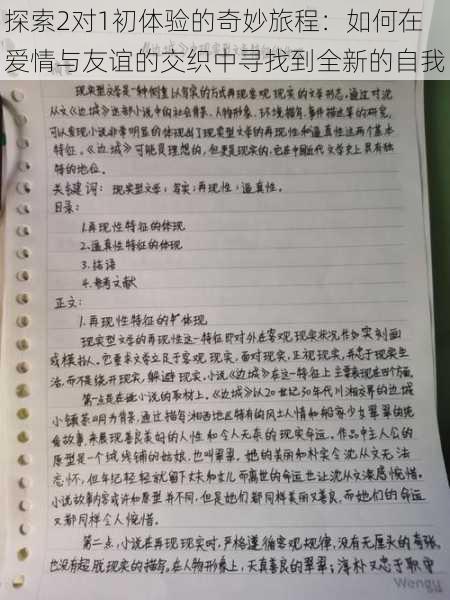 探索2对1初体验的奇妙旅程：如何在
爱情与友谊的交织中寻找到全新的自我
现实型文学是一种侧重以写实的方式再现客观现实的文学形态。通过对沈
从文《边城》这部小说中的社会背景、人物形象、环境描写、事件描述等的研究,
可以发现小说非常明显的体现出了现实型文学的再现性和逼真性这两个基本
特征。《边城》可能是理想的，但更是现实的，它在中国近代文学史上具有独
特的地位。
关键词：现实型文学；写实；再现性；逼真性。
目录：
1.再现性特征的体现
2.逼真性特征的体现
3.结语
4.参考文献
正文：
1.再现性特征的体现
现实型文学的再现性这一特征即对外在客观现实状况作如实刻画
或模拟。它要求文学立足于客观现实，面对现实，正视现实，并忠于现实生
活，而不是绕开现实，躲避现实。小说《边城》在这一特征上主要表现在四个方面
第一点是在于小说的取材上。《边城》以20世纪30年代川湘交界的边城
小镇茶峒为背景，通过描写湘西地区特有的风土人情和船家少女翠翠的纯
爱故事，来展现善良美好的人性和令人无奈的现实命运。作品中主人公的
原型是一个绒线铺的姑娘，也叫翠翠，她的美丽和朴实令沈从文无法
忘怀，但年纪轻轻就留下丈夫和女儿而离世的命运也让沈从文深感惋惜。
小说故事内容或许和原型并不同，但是她们都同样美丽又善良，而她们的命运
又都同样令人惋惜。
第二点，小说在再现现实时，严格遵循客观规律，没有无厘头的夸张，
也没有超脱现实的描写。在人物形象上，天真善良的翠翠；淳朴又忠于职守
Wengu